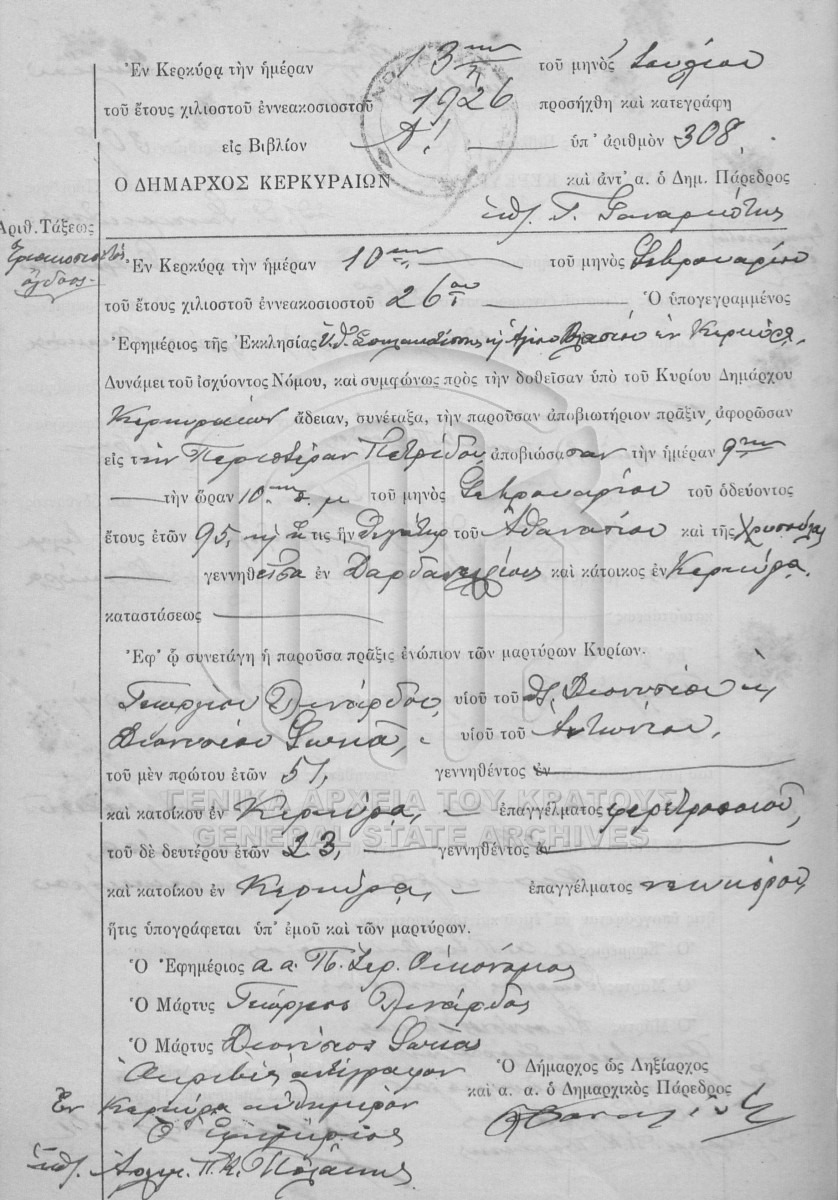 Ἐν Κερκύρᾳ τὴν ἡμέραν 13ην τοῦ μηνὸς Ἰουλίου
τοῦ ἔτους χιλιοστοῦ ἐννεακοσιοστοῦ 1926 προσήχθη καὶ κατεγράφη
εἰς Βιβλίον Α! ὑπ' ἀριθμὸν 308,
Ο ΔΗΜΑΡΧΟΣ ΚΕΡΚΥΡΑΙΩΝ καὶ ἀντ' α. ὁ Δημ. Πάρεδρος
Γ.
Ἀριθ. Τάξεως
Τριακοσιοστὸς
ὄγδοος.-
Ἐν Κερκύρᾳ τὴν ἡμέραν 10ην τοῦ μηνὸς Φεβρουαρίου
τοῦ ἔτους χιλιοστοῦ ἐννεακοσιοστοῦ 26ου Ὁ ὑπογεγραμμένος
Ἐφημέριος τῆς Ἐκκλησίας Ὑ.Θ. Σπηλαιωτίσσης κ Ἁγίου Βλασίου ἐν Κερκύρᾳ,
Δυνάμει τοῦ ἰσχύοντος Νόμου, καὶ συμφώνως πρὸς τὴν δοθεῖσαν ὑπὸ τοῦ Κυρίου Δημάρχου
Κερκυραίων ἄδειαν, συνέταξα, τὴν παροῦσαν ἀποβιωτήριον πρᾶξιν, ἀφορῶσαν
εἰς τὴν Περιστέραν Πετρίδου, ἀποβιώσασαν τὴν ἡμέραν 9ην
τὴν ὥραν 10.ην π. μ τοῦ μηνὸς Φεβρουαρίου τοῦ ὁδεύοντος
ἔτους ἐτῶν 95, ἥτις ἦν θυγάτηρ τοῦ Ἀθανασίου καὶ τῆς Χρυσούλας
γεννηθεῖσα ἐν Δαρδανελλίοις καὶ κάτοικος ἐν Κερκύρᾳ.
καταστάσεως
Ἐφ' ᾧ συνετάγη ἡ παροῦσα πρᾶξις ἐνώπιον τῶν μαρτύρων Κυρίων.
Γεωργίου Λινάρδου, υἱοῦ τοῦ Διονυσίου κ
Διονυσίου Σωκᾶ, υἱοῦ τοῦ Ἀντωνίου,
τοῦ μὲν πρώτου ἐτῶν 51, γεννηθέντος ἐν
καὶ κατοίκου ἐν Κερκύρᾳ, ἐπαγγέλματος φερετροποιοῦ,
τοῦ δὲ δευτέρου ἐτῶν 23, γεννηθέντος ἐν
καὶ κατοίκου ἐν Κερκύρᾳ, ἐπαγγέλματος νεωκόρου,
ἥτις ὑπογράφεται ὑπ' ἐμοῦ καὶ τῶν μαρτύρων.
Ὁ Ἐφημέριος α.α. Π. Σερ. Οἰκονόμος
Ὁ Μάρτυς Γεώργιος Λινάρδος
Ὁ Μάρτυς Διονύσιος Σωκᾶς
Ἀκριβὲς ἀντίγραφον
Ὁ Δήμαρχος ὡς Ληξίαρχος
καὶ α. α. ὁ Δημαρχικὸς Πάρεδρος
Ἐν Κερκύρᾳ αὐθημερόν
Ὁ Ἐφημέριος
ΓΕΝΙΚΑ ΑΡΧΕΙΑ ΤΟΥ ΚΡΑΤΟΥΣ
GENERAL STATE ARCHIVES